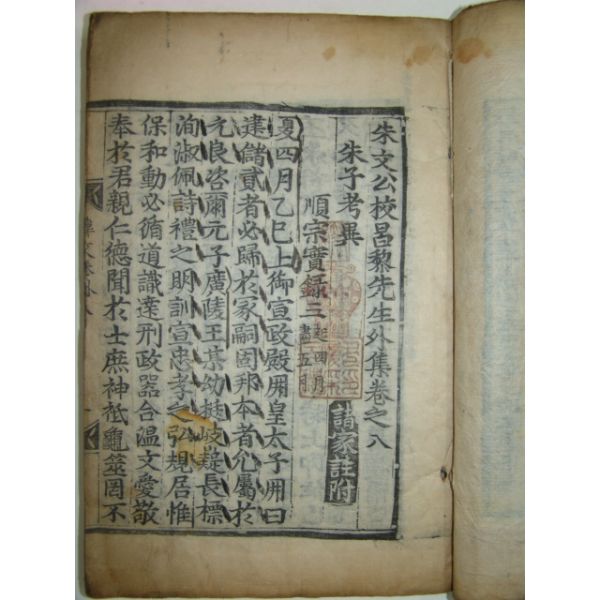 朱文公校昌黎先生外集卷之八
朱子考異
順宗實錄三 起四月盡五月 諸家註附
夏四月乙巳上御宣政殿冊皇太子冊曰
建儲貳者必歸於冢嗣固邦本者允屬於
元良咨爾元子廣陵王某幼挺岐嶷長標
洵淑佩詩禮之明訓宣忠孝之弘規居惟
保和動必循道識達刑政器合溫文愛敬
奉於君親仁德聞於士庶神祗龜筮罔不